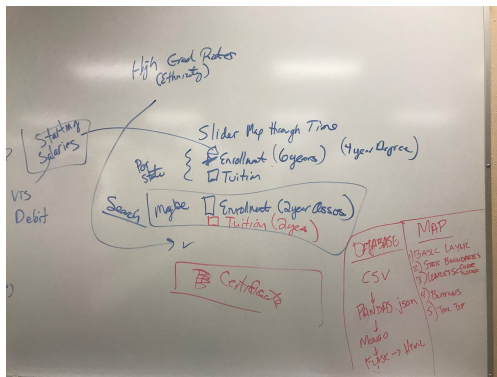 High Grad Rates
(Ethnicity)
Starting
Salaries
Slider Map through Time
Per
State
Enrollment (6 years) (4 year Degree)
Tuition
VTS
Debit
Search
Maybe
Enrollment (2 year classes)
Tuition (2 years)
Certificate
DATABASE
CSV
PANDAS .json
Mongo
Flask → HTML
MAP
1) BASIC LAYER
2) STATE BOUNDARIES
3) LEAFLET
4) BUTTONS
5)